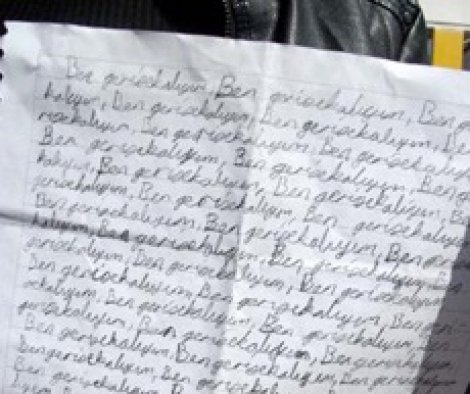 Ben gerisekalıyım, Ben gerisekalıyım, Ben ge
kalıyım, Ben gerisekalıyım, Ben gerisekalıyım, Be
risekalıyım, Ben gerisekalıyım, Ben gerisekalıyım,
Ben gerisekalıyım, Ben gerisekalıyım, Ben ge
kalıyım, Ben gerisekalıyım, Ben gerisekalıyım,
gerisekalıyım, Ben gerisekalıyım, Ben gerisekalıyım,
Ben gerisekalıyım, Ben gerisekalıyım, Ben geri
kalıyım, Ben gerisekalıyım, Ben gerisekalıyım,
gerisekalıyım, Ben gerisekalıyım, Ben gerisekalıyım,
Ben gerisekalıyım, Ben gerisekalıyım, Ben geri-
sekalıyım, Ben gerisekalıyım, Ben gerisekalıyım,
gerisekalıyım, Ben gerisekalıyım, Ben gerisekalıyım,
Ben gerisekalıyım, Ben gerisekalıyım,
Ben gerisekalıyım, Ben gerisekalıyım, Ben
lıyım, Ben gerisekalıyım, Ben